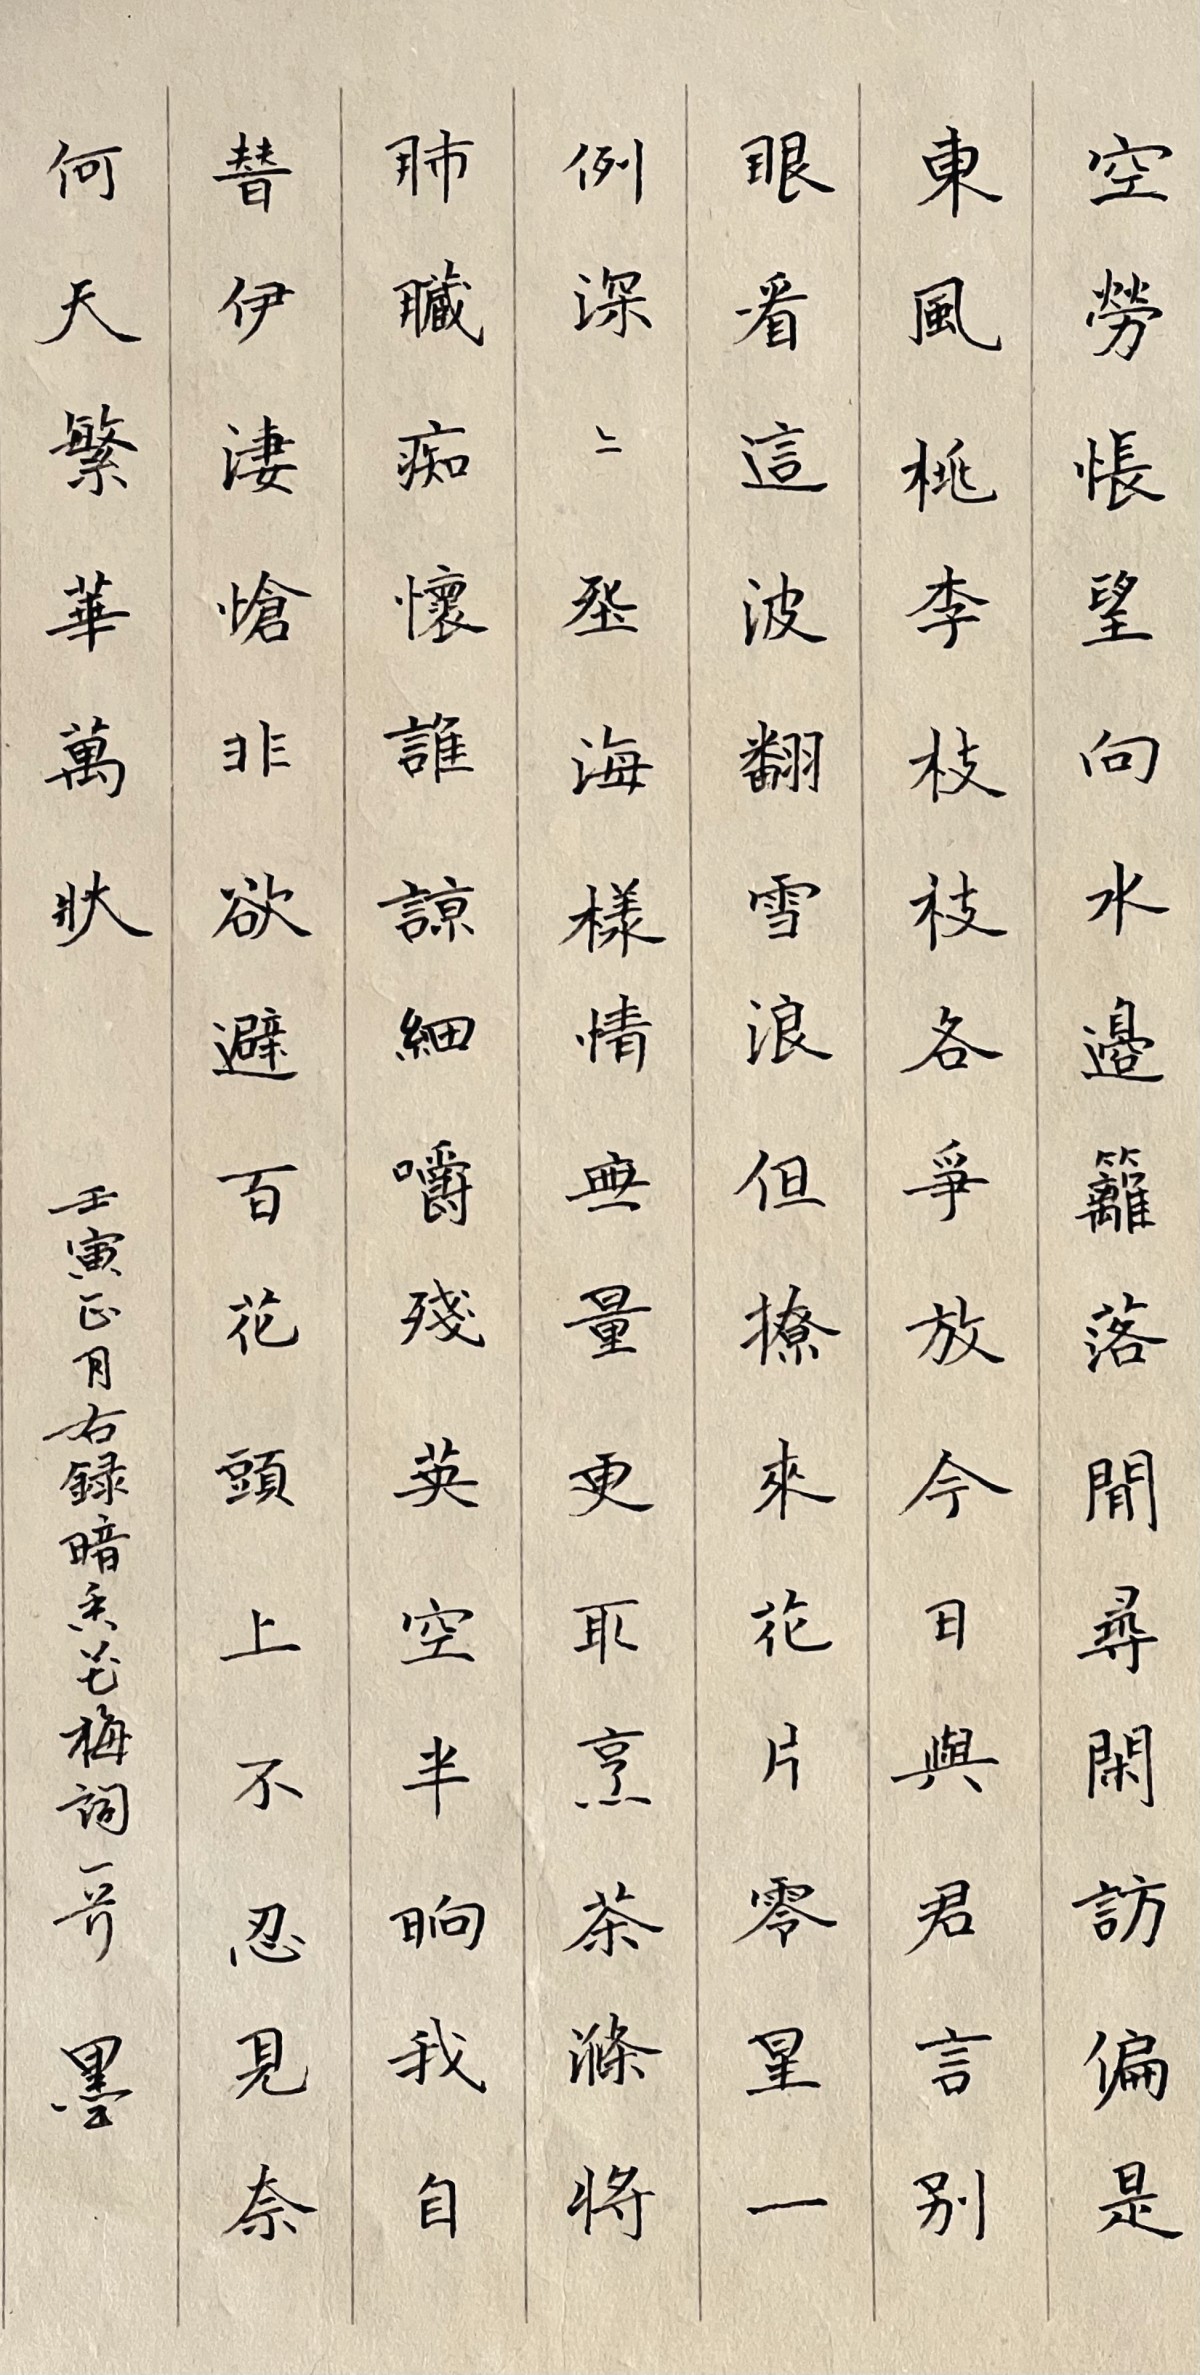 空勞悵望向水邊籬落閒尋閑訪偏是
東風桃李枝枝各爭放今日與君言別
眼看這波翻雪浪但撩來花片零星一
例深〻埊海樣情無量更取烹茶滌將
肺臟痴懷誰諒細嚼殘英空半晌我自
替伊淒愴非欲避百花頭上不忍見奈
何天繁華萬狀
壬寅正月右錄暗香花梅詞一首 墨